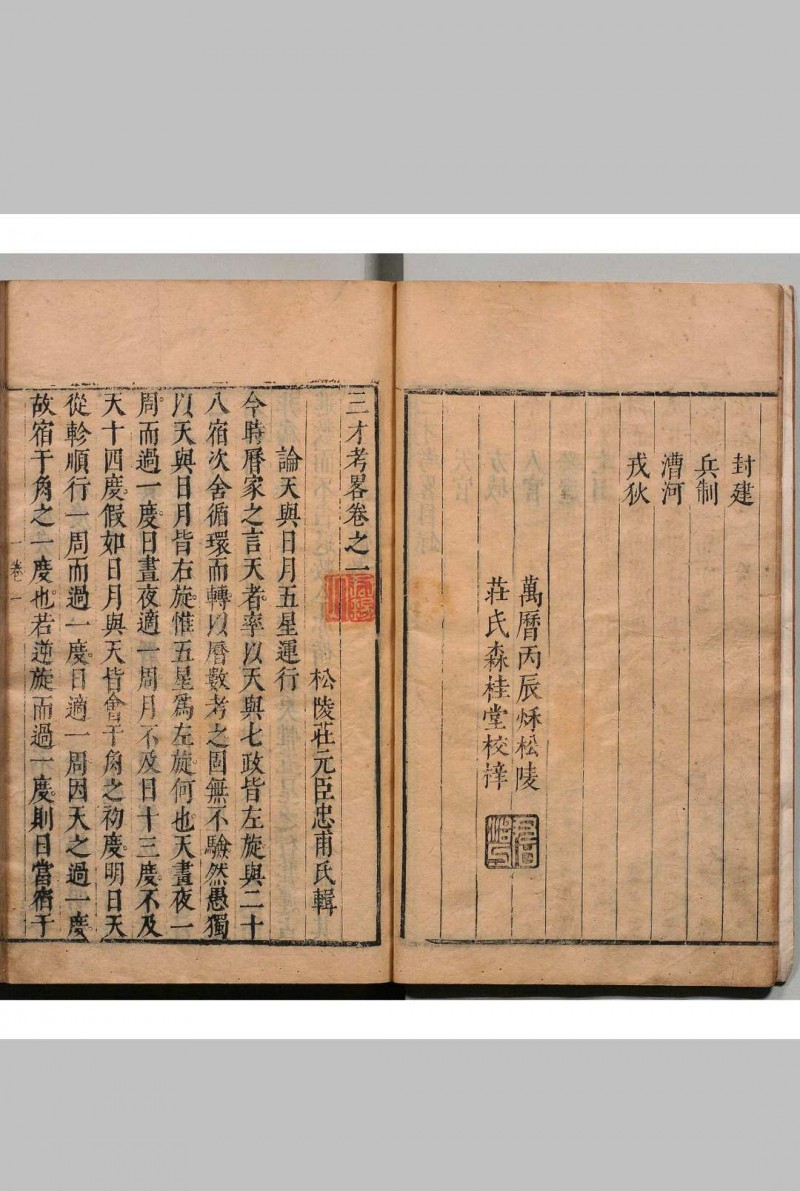 封建
兵制
漕河
戎狄
萬曆丙辰穌松陵
莊氏森桂堂校梓
三才考畧卷之一
松陵莊元臣忠甫氏輯
論天與日月五星運行
今時曆家之言天者率以天與七政皆左旋與二十
八宿次舍循環而轉以曆數考之固無不驗然愚獨
以天與日月皆右旋惟五星爲左旋何也天晝夜一
周而過一度日晝夜適一周月不及日十三度不及
天十四度假如日月與天皆會于角之初度明日天
從軫順行一周而過一度日適一周因天之過一度
故宿于角之一度也若逆旋而過一度則日當宿于
卷一